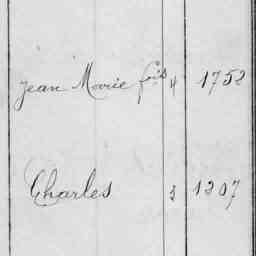 Jean Marie fois 4 1752
Charles 3 1207